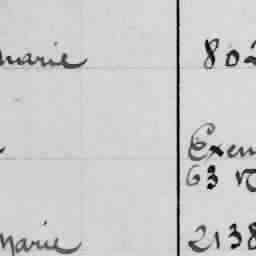 marie 802
Exem
63 n
Marie 2138